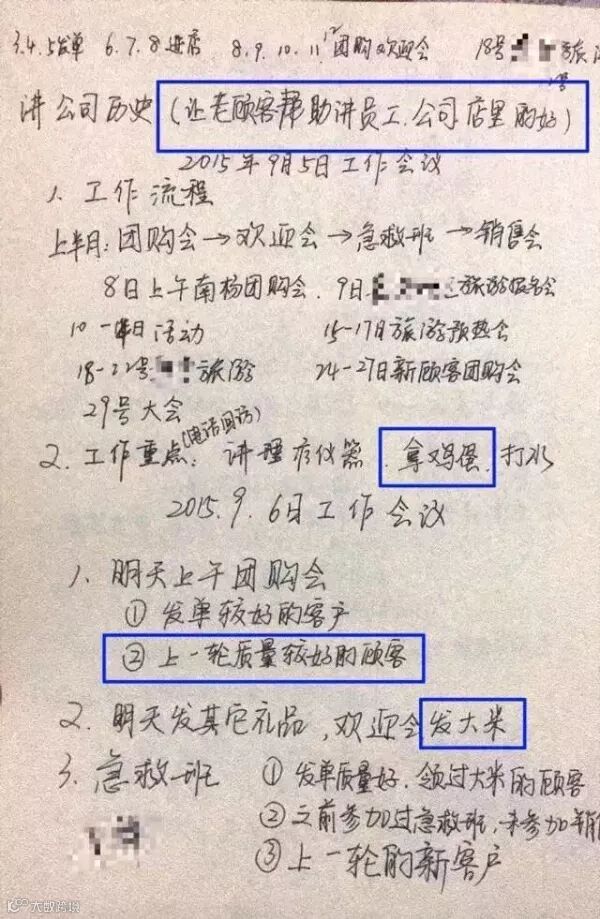 3.4.5发单 6.7.8进店 8.9.10.11.12团购欢迎会 18号 旅游
讲公司历史(让老顾客帮助讲员工.公司店里的好)
2015年9月5日工作会议
1. 工作流程
上半月:团购会→欢迎会→急救班→销售会
8日上午南杨团购会. 9日 旅游报名会
10-日活动 15-17日旅游预热会
18-22号 旅游 24-27日新顾客团购会
29号大会
(电话回访)
2. 工作重点: 讲理疗仪器.拿鸡蛋.打水
2015.9.6日工作会议
1. 明天上午团购会
① 发单较好的客户
② 上一轮质量较好的顾客
2. 明天发其它礼品,欢迎会发大米
3. 急救班 ① 发单质量好.领过大米的顾客
② 之前参加过急救班,未参加销
③ 上一轮的新客户
大数跨境